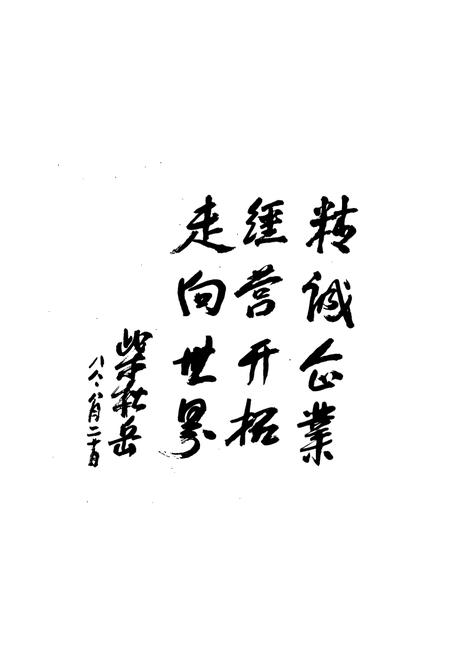 精诚企業
經营开拓
走向世界
柴松岳
八八、八月二十日